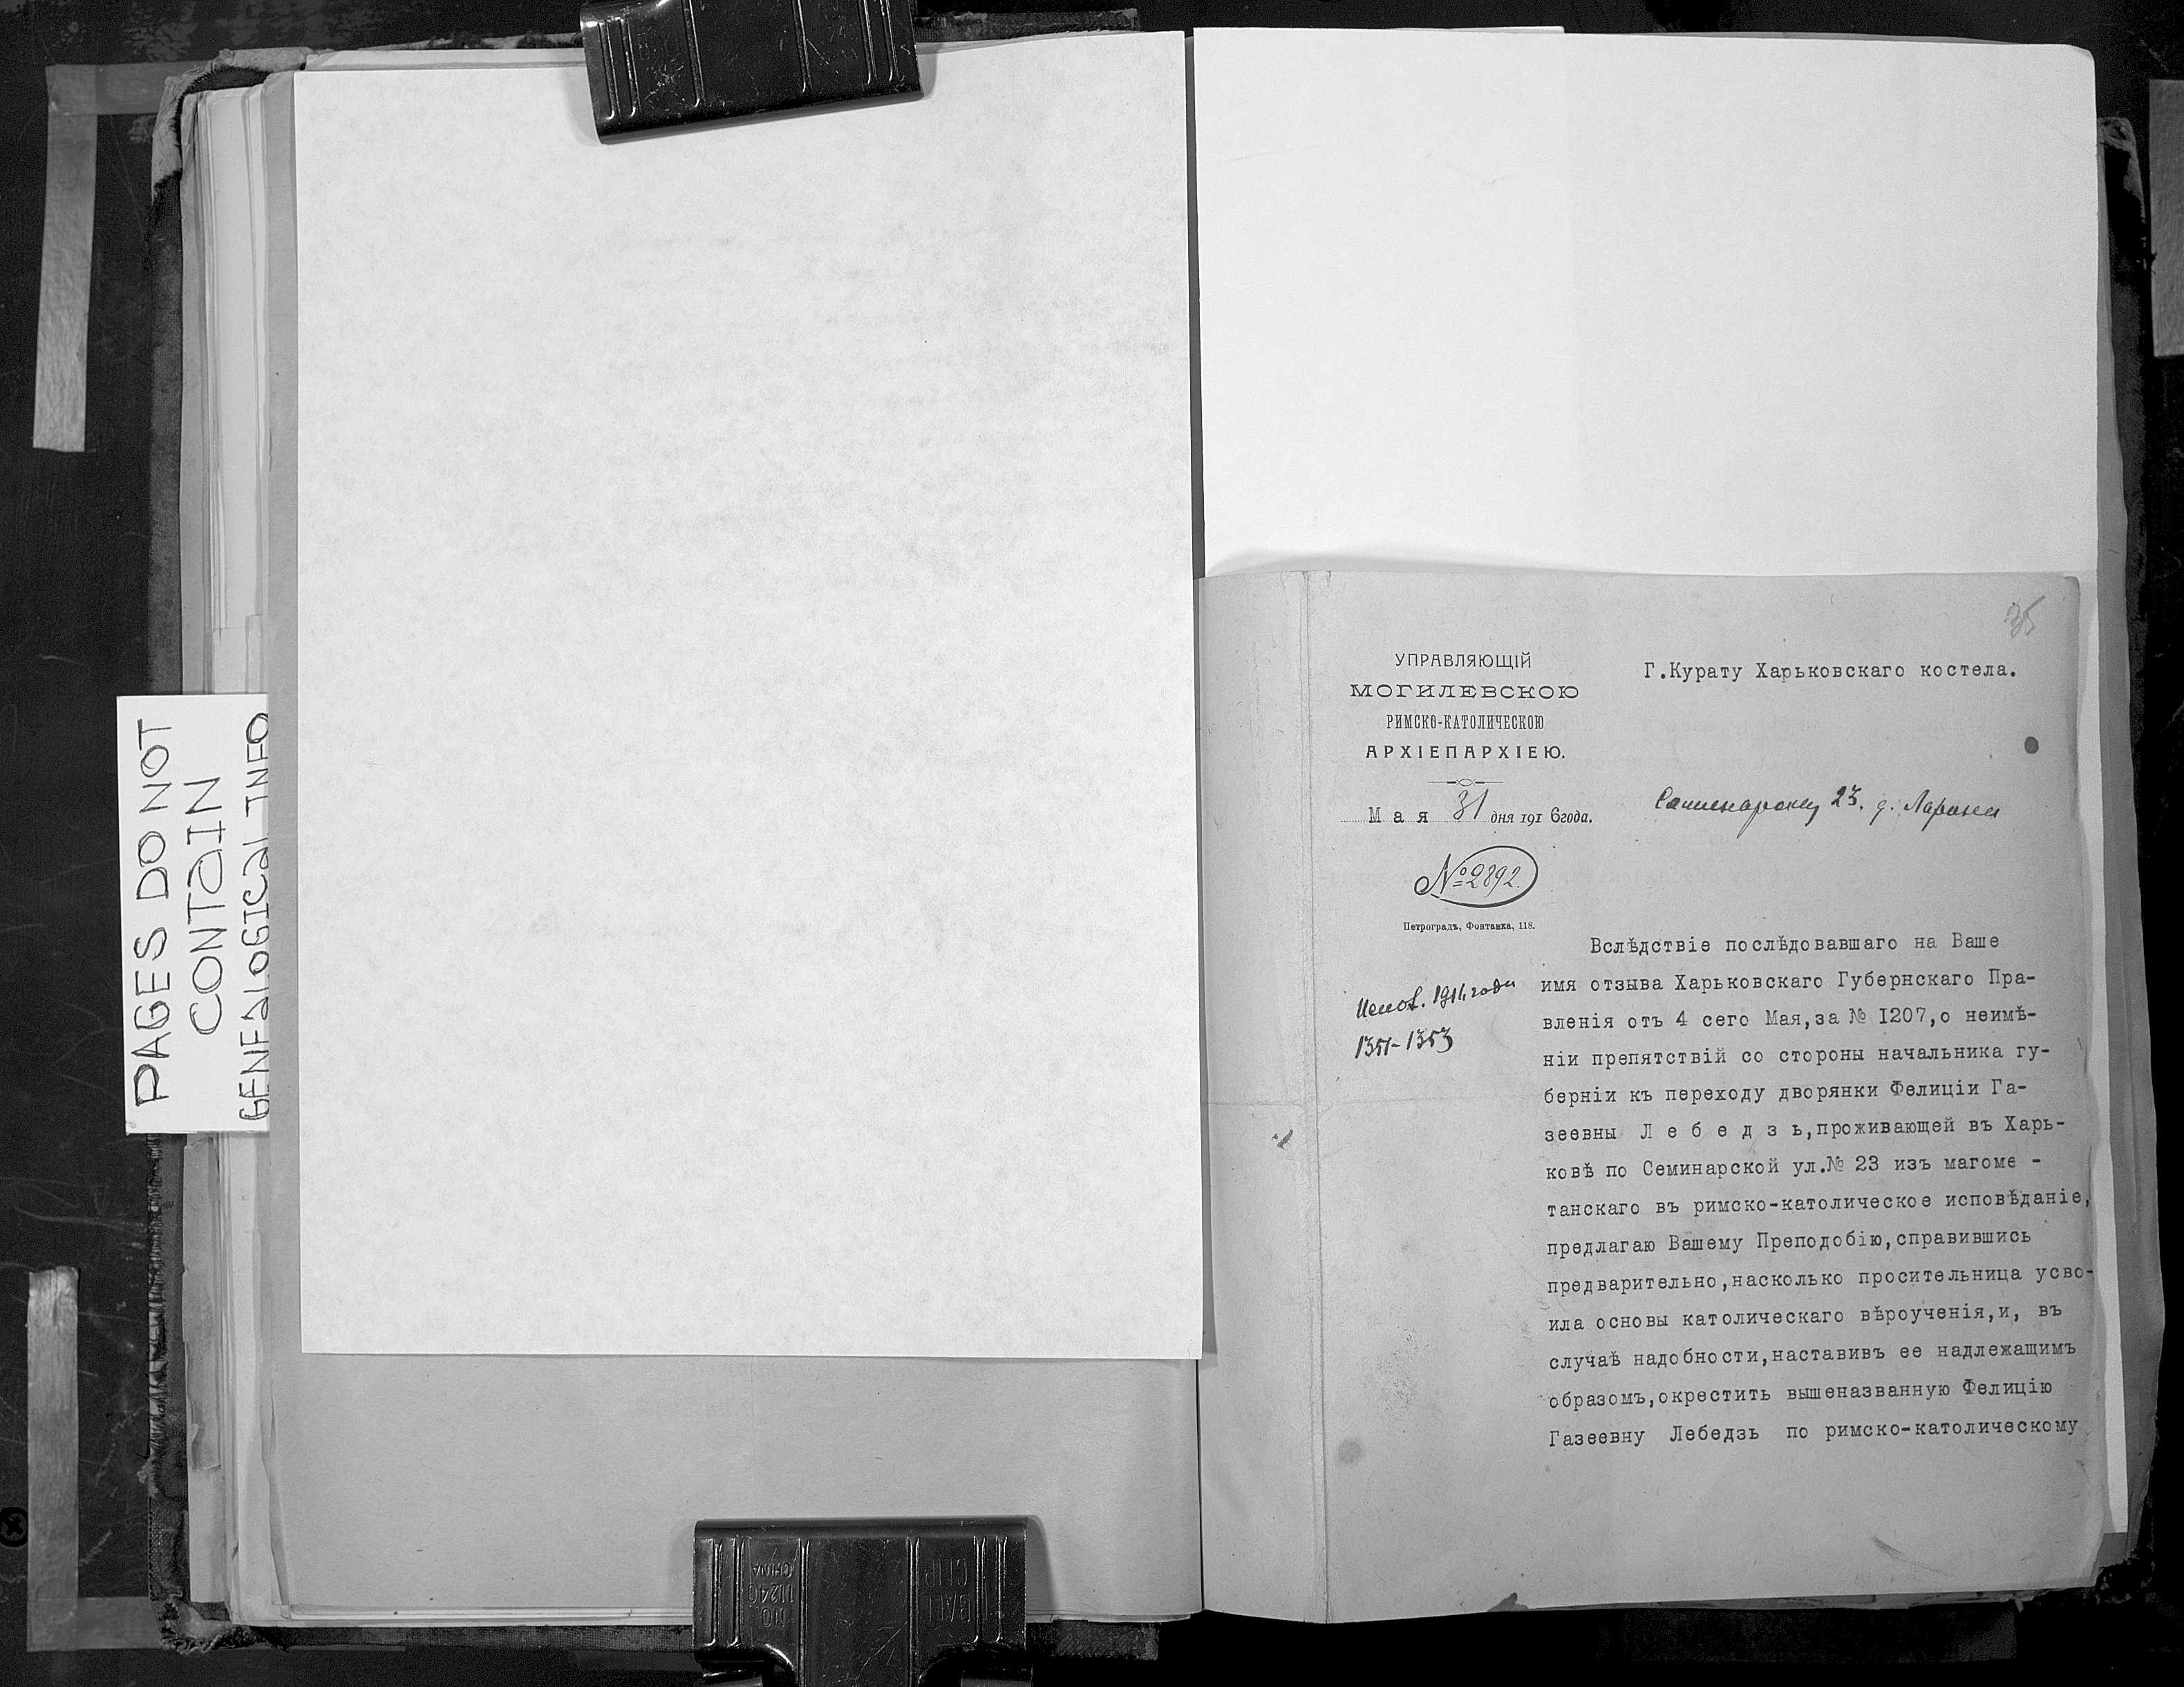 PAGES DO NOT
CONTAIN
GENEALOGICAL INFO
35
УПРАВЛЯЮЩІЙ
МОГИЛЕВСКОЮ
РИМСКО-КАТОЛИЧЕСКОЮ
АРХІЕПАРХІЕЮ.
Мая 31 дня 1916 года.
№ 2892.
Петроградъ, Фонтанка, 118.
1351-1353
Г.Курату Харьковскаго костела.
23. д.
Вслѣдствіе послѣдовавшаго на Ваше
имя отзыва Харьковскаго Губернскаго Пра-
вленія отъ 4 сего Мая,за № I207,о неимѣ-
ніи препятствій со стороны начальника гу-
берніи къ переходу дворянки Фелиціи Га-
зеевны Л е б е д з ь,проживающей въ Харь-
ковѣ по Семинарской ул.№ 23 изъ магоме -
танскаго въ римско-католическое исповѣданіе,
предлагаю Вашему Преподобію,справившись
предварительно,насколько просительница усво-
ила основы католическаго вѣроученія,и, въ
случаѣ надобности,наставивъ ее надлежащимъ
образомъ,окрестить вышеназванную Фелицію
Газеевну Лебедзь по римско-католическому